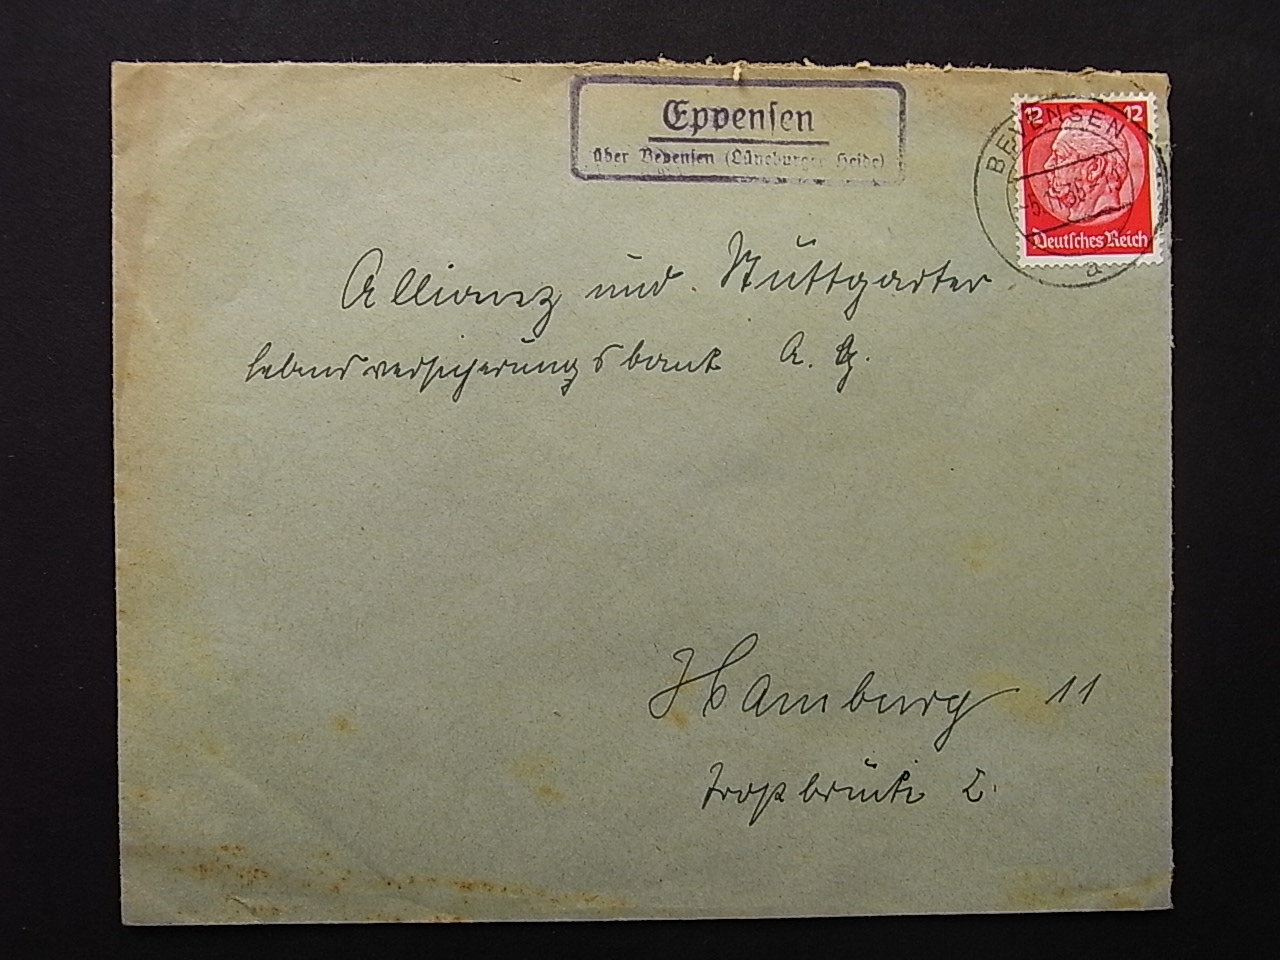 Eppensen
über Bevensen (Lüneburger Heide)
12 12
BEVENSEN
-5.11.36
a
Deutsches Reich
Allianz und Stuttgarter
Lebensversicherungsbank A. G.
Hamburg 11
Trostbrücke 2.